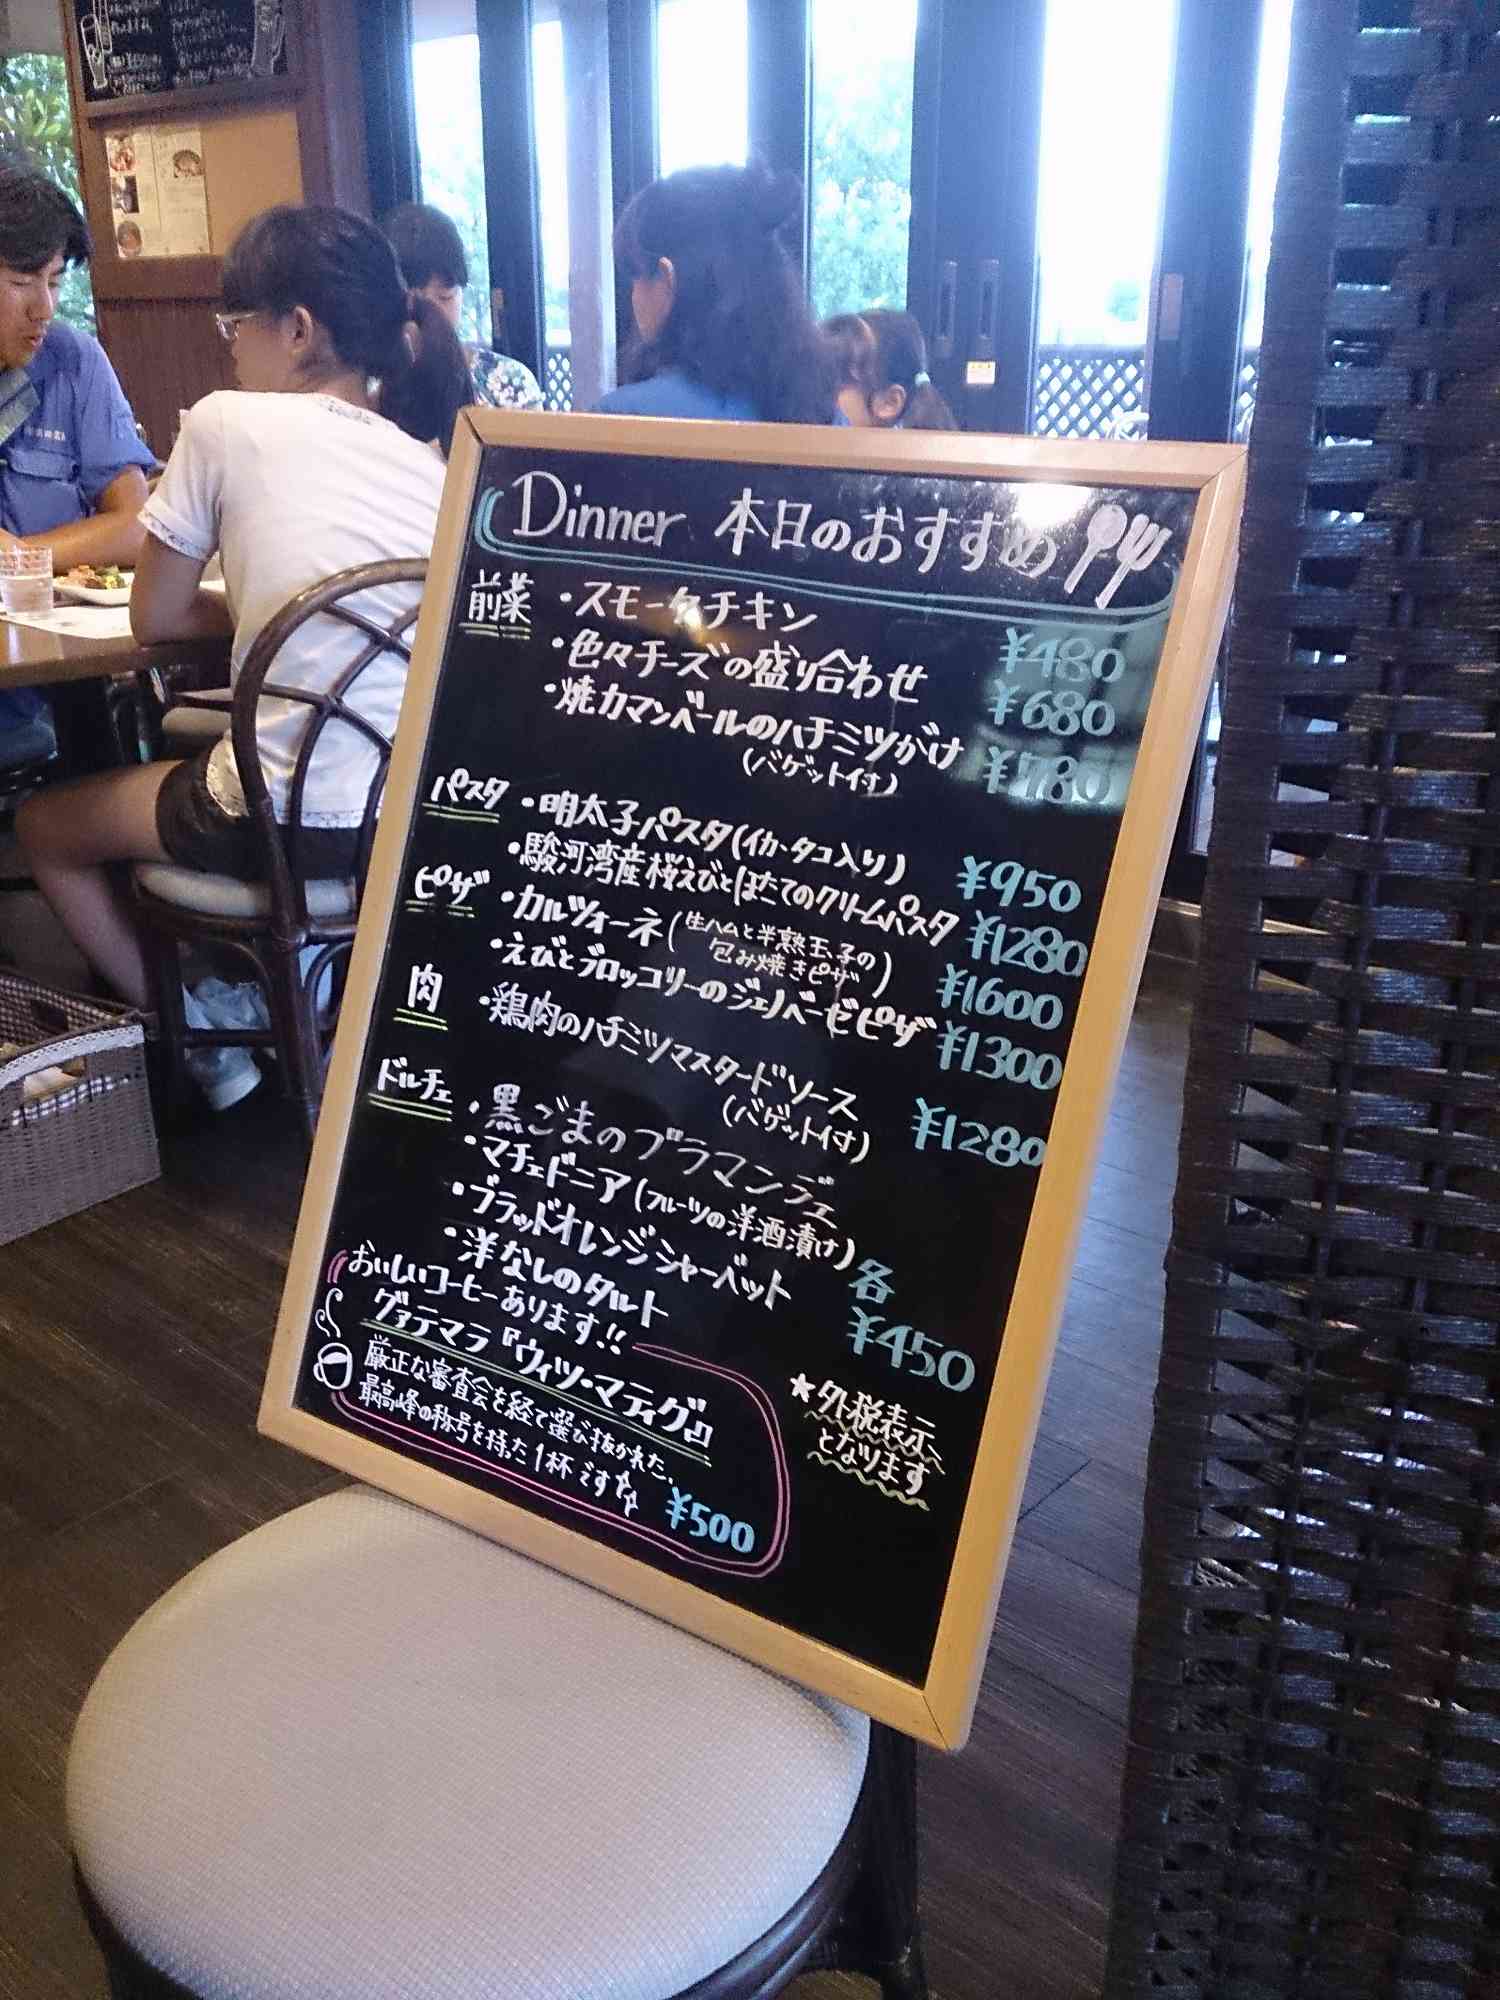 Dinner 本日のおすすめ
前菜 ・スモークチキン ¥480
・色々チーズの盛り合わせ ¥680
・焼カマンベールのハチミツがけ ¥780
(バゲット付)
パスタ ・明太子パスタ(イカ・タコ入り) ¥950
・駿河湾産桜えびとほたてのクリームパスタ ¥1280
ピザ ・カルツォーネ(生ハムと半熟玉子の
包み焼きピザ) ¥1600
・えびとブロッコリーのジェノベーゼピザ ¥1300
肉 ・鶏肉のハチミツマスタードソース
(バゲット付) ¥1280
ドルチェ ・黒ごまのブラマンデェ
・マチェドニア(フルーツの洋酒漬け)
・ブラッドオレンジシャーベット 各
・洋なしのタルト ¥450
おいしいコーヒーあります!!
グァテマラ『ウィツ・マティグ』
厳正な審査会を経て選び抜かれた、
最高峰の称号を持った1杯です☆☆
¥500
★外税表示
となります